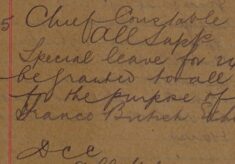 5 Chief Constable
All Supts
Special leave for
be granted to all
for the purpose of
Franco British
D.C.C.